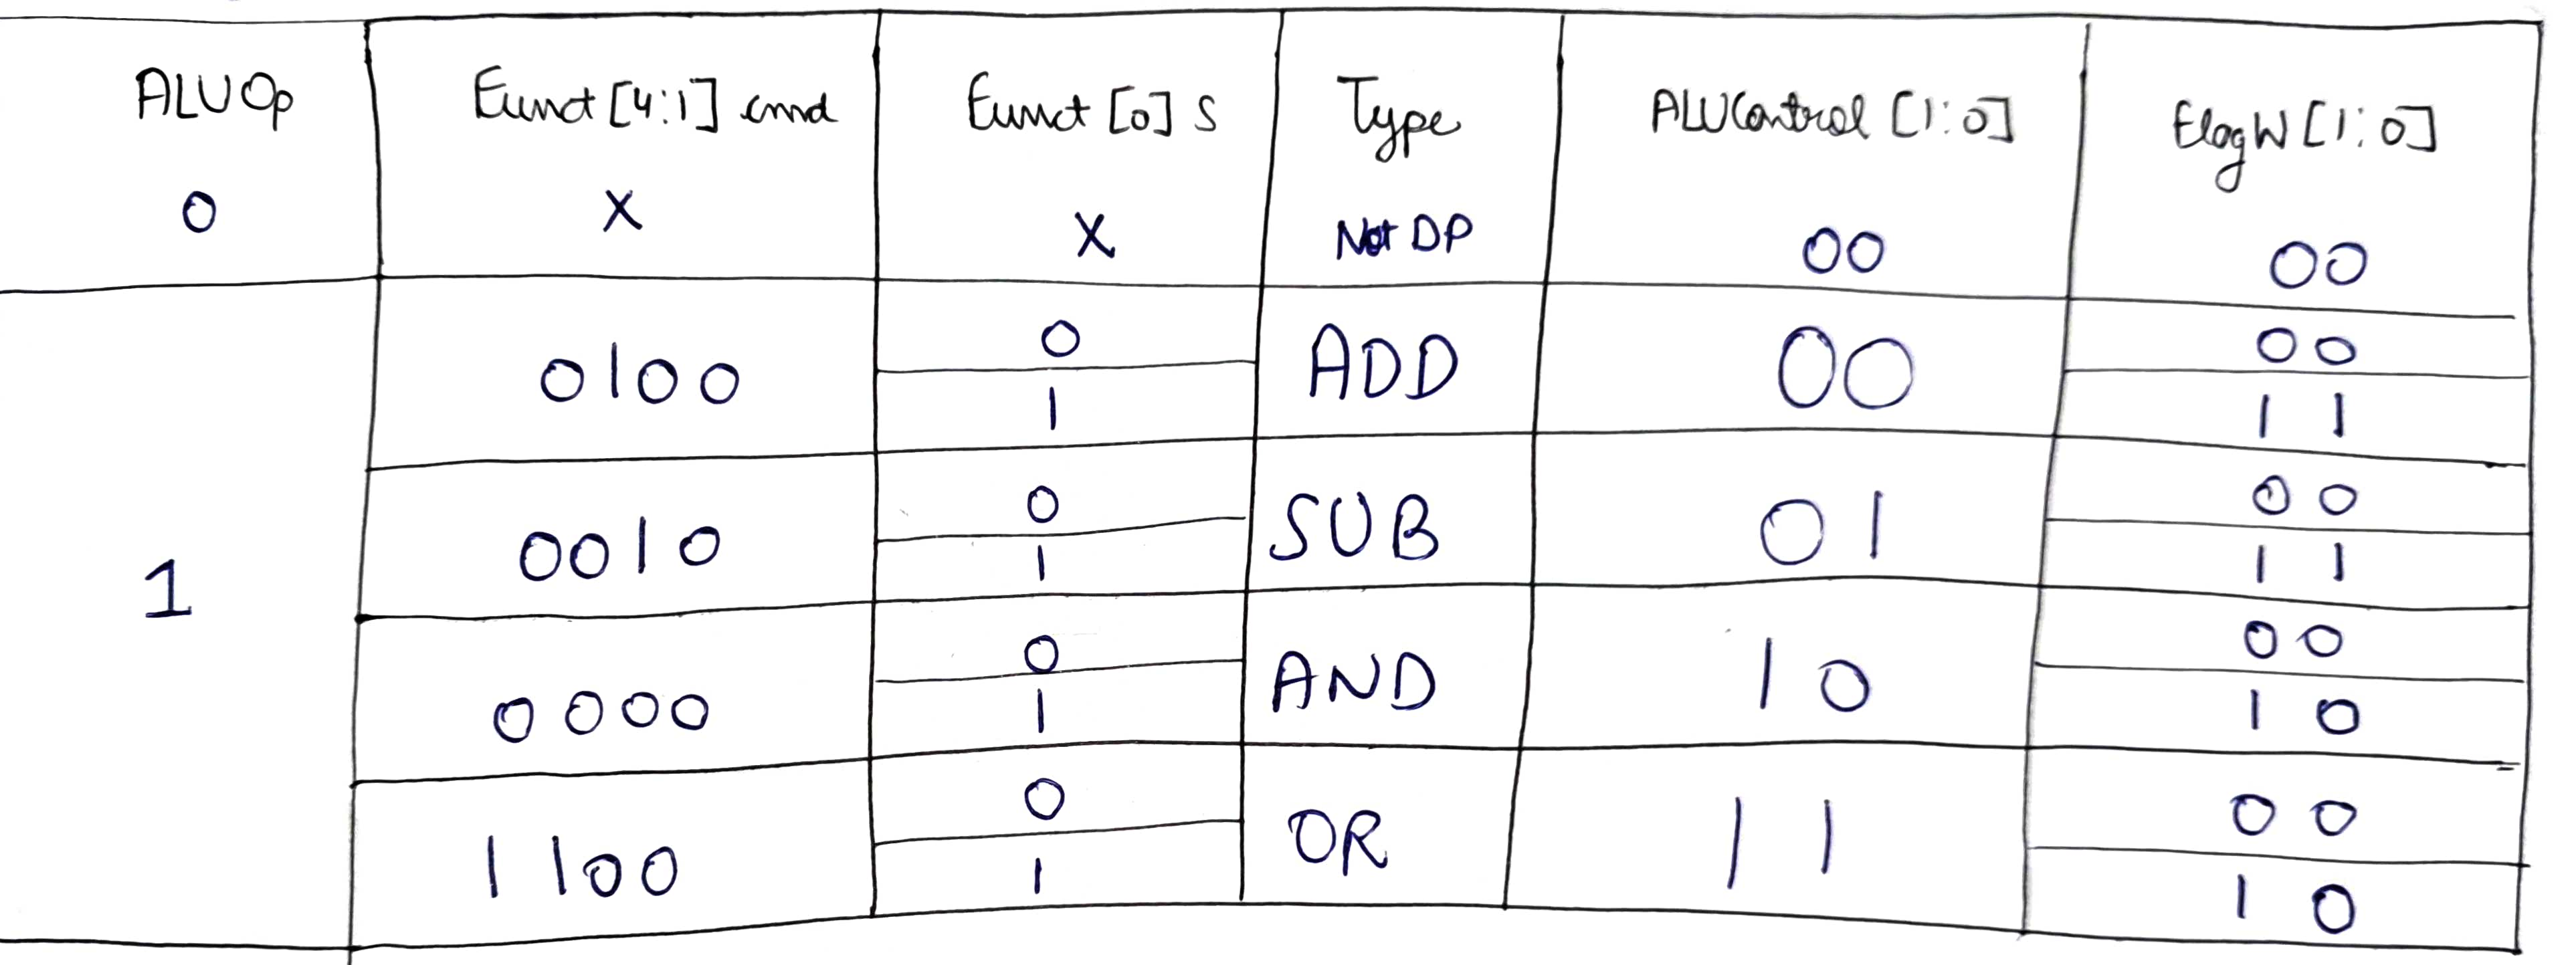 ALUOp Funct [4:1] cmd Funct [0] S Type ALUControl [1:0] FlagW [1:0]
0 X X Not DP 00 00
0100 0 ADD 00 00
1 11
0010 0 SUB 01 00
1 1 11
0000 0 AND 10 00
1 10
1100 0 OR 11 00
1 10